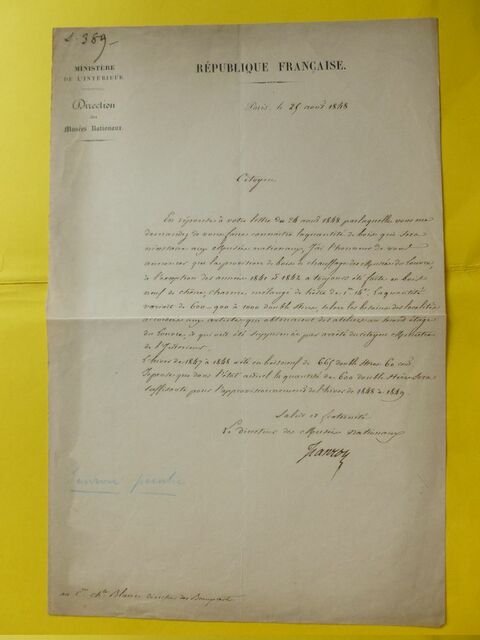 d. 389
MINISTÈRE
DE L'INTÉRIEUR
Direction
des
Musées Nationaux.
RÉPUBLIQUE FRANÇAISE.
Paris, le 25 aout 1848
Citoyen
En réponse à votre lettre du 24 aout 1848 par laquelle vous me
demandez de vous faire connaitre la quantité de bois qui sera
nécessaire aux Musées nationaux, j'ai l'honneur de vous
annoncer que la provision de bois de chauffage des Musées du Louvre,
à l'exception des années 1841 à 1842 a toujours été faite en bois
neuf de chêne, charme, mélangé de hêtre de 1ère qté. La quantité
variait de 600-900 à 1000 double stères, selon les besoins des localités
accordées aux artistes qui obtenaient des ateliers au grand étage
du Louvre, ce qui a été supprimé par arrêté du citoyen Ministre
de l'Intérieur.
L'hiver de 1847 à 1848 a été en bois neuf de 665 double stères 60 cent.
Je pense que dans l'état actuel la quantité de 600 double stères sera
suffisante pour l'approvisionnement de l'hiver de 1848 à 1849.
Salut et fraternité
Le directeur des Musées nationaux
Jeanron
au Cen. Ch. Blanc directeur des Beaux arts